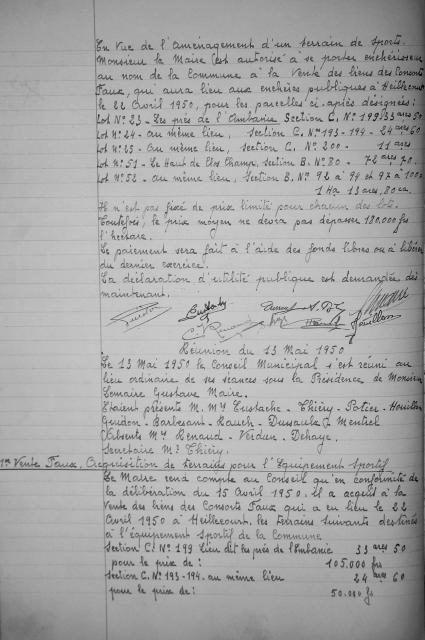 En vue de l'aménagement d'un terrain de sports.
Monsieur le Maire est autorisé à se porter enchérisseur
au nom de la Commune à la Vente des biens des Consorts
Faux, qui aura lieu aux enchères publiques à Heillecourt
le 22 Avril 1950, pour les parcelles ci-après désignées:
Lot N° 23 - Les prés de l'Embanie Section C. N° 199 : 33 ares 50
Lot N° 24 - au même lieu, Section C. N° 193-194 - 24 ares 60
Lot N° 25 - au même lieu, section C. N° 200 - 11 ares
Lot N° 51 - Le Haut de Clos Champ, section B. N° 80 - 72 ares 70
Lot N° 52 - au même lieu, Section B. N° 92 à 94 et 97 à 100
1 Ha 13 ares, 80 ca.
Il n'est pas fixé de prix limité pour chacun des lots.
Toutefois, le prix moyen ne devra pas dépasser 180.000 frs
l'hectare.
Le paiement sera fait à l'aide des fonds libres ou à libérer
du dernier exercice.
La déclaration d'utilité publique est demandée dès
maintenant.
Houillon
Réunion du 13 Mai 1950
Le 13 Mai 1950 le Conseil Municipal s'est réuni au
lieu ordinaire de ses séances sous la Présidence de Monsieur
Lemaire Gustave Maire.
Etaient présents M. Mrs Eustache - Thiéry - Potier - Houillon
Guidon - Barbesant - Rauch - Dussaulx - Mentiel
Absents Mrs Renaud - Verdun - Dehaye.
Secrétaire Mr Thiéry.
1° Vente Faux. Acquisition de terrains pour l'Equipement Sportif
Le Maire rend compte au Conseil qu'en conformité de
la délibération du 15 Avril 1950. il a acquis à la
Vente des biens des Consorts Faux qui a eu lieu le 22
Avril 1950 à Heillecourt. les terrains suivants destinés
à l'équipement Sportif de la Commune
Section C. N° 199 Lieu dit les prés de l'Embanie 33 ares 50
pour le prix de : 105.000 frs
Section C. N° 193-194. au même lieu 24 ares 60
pour le prix de : 50.000 fs